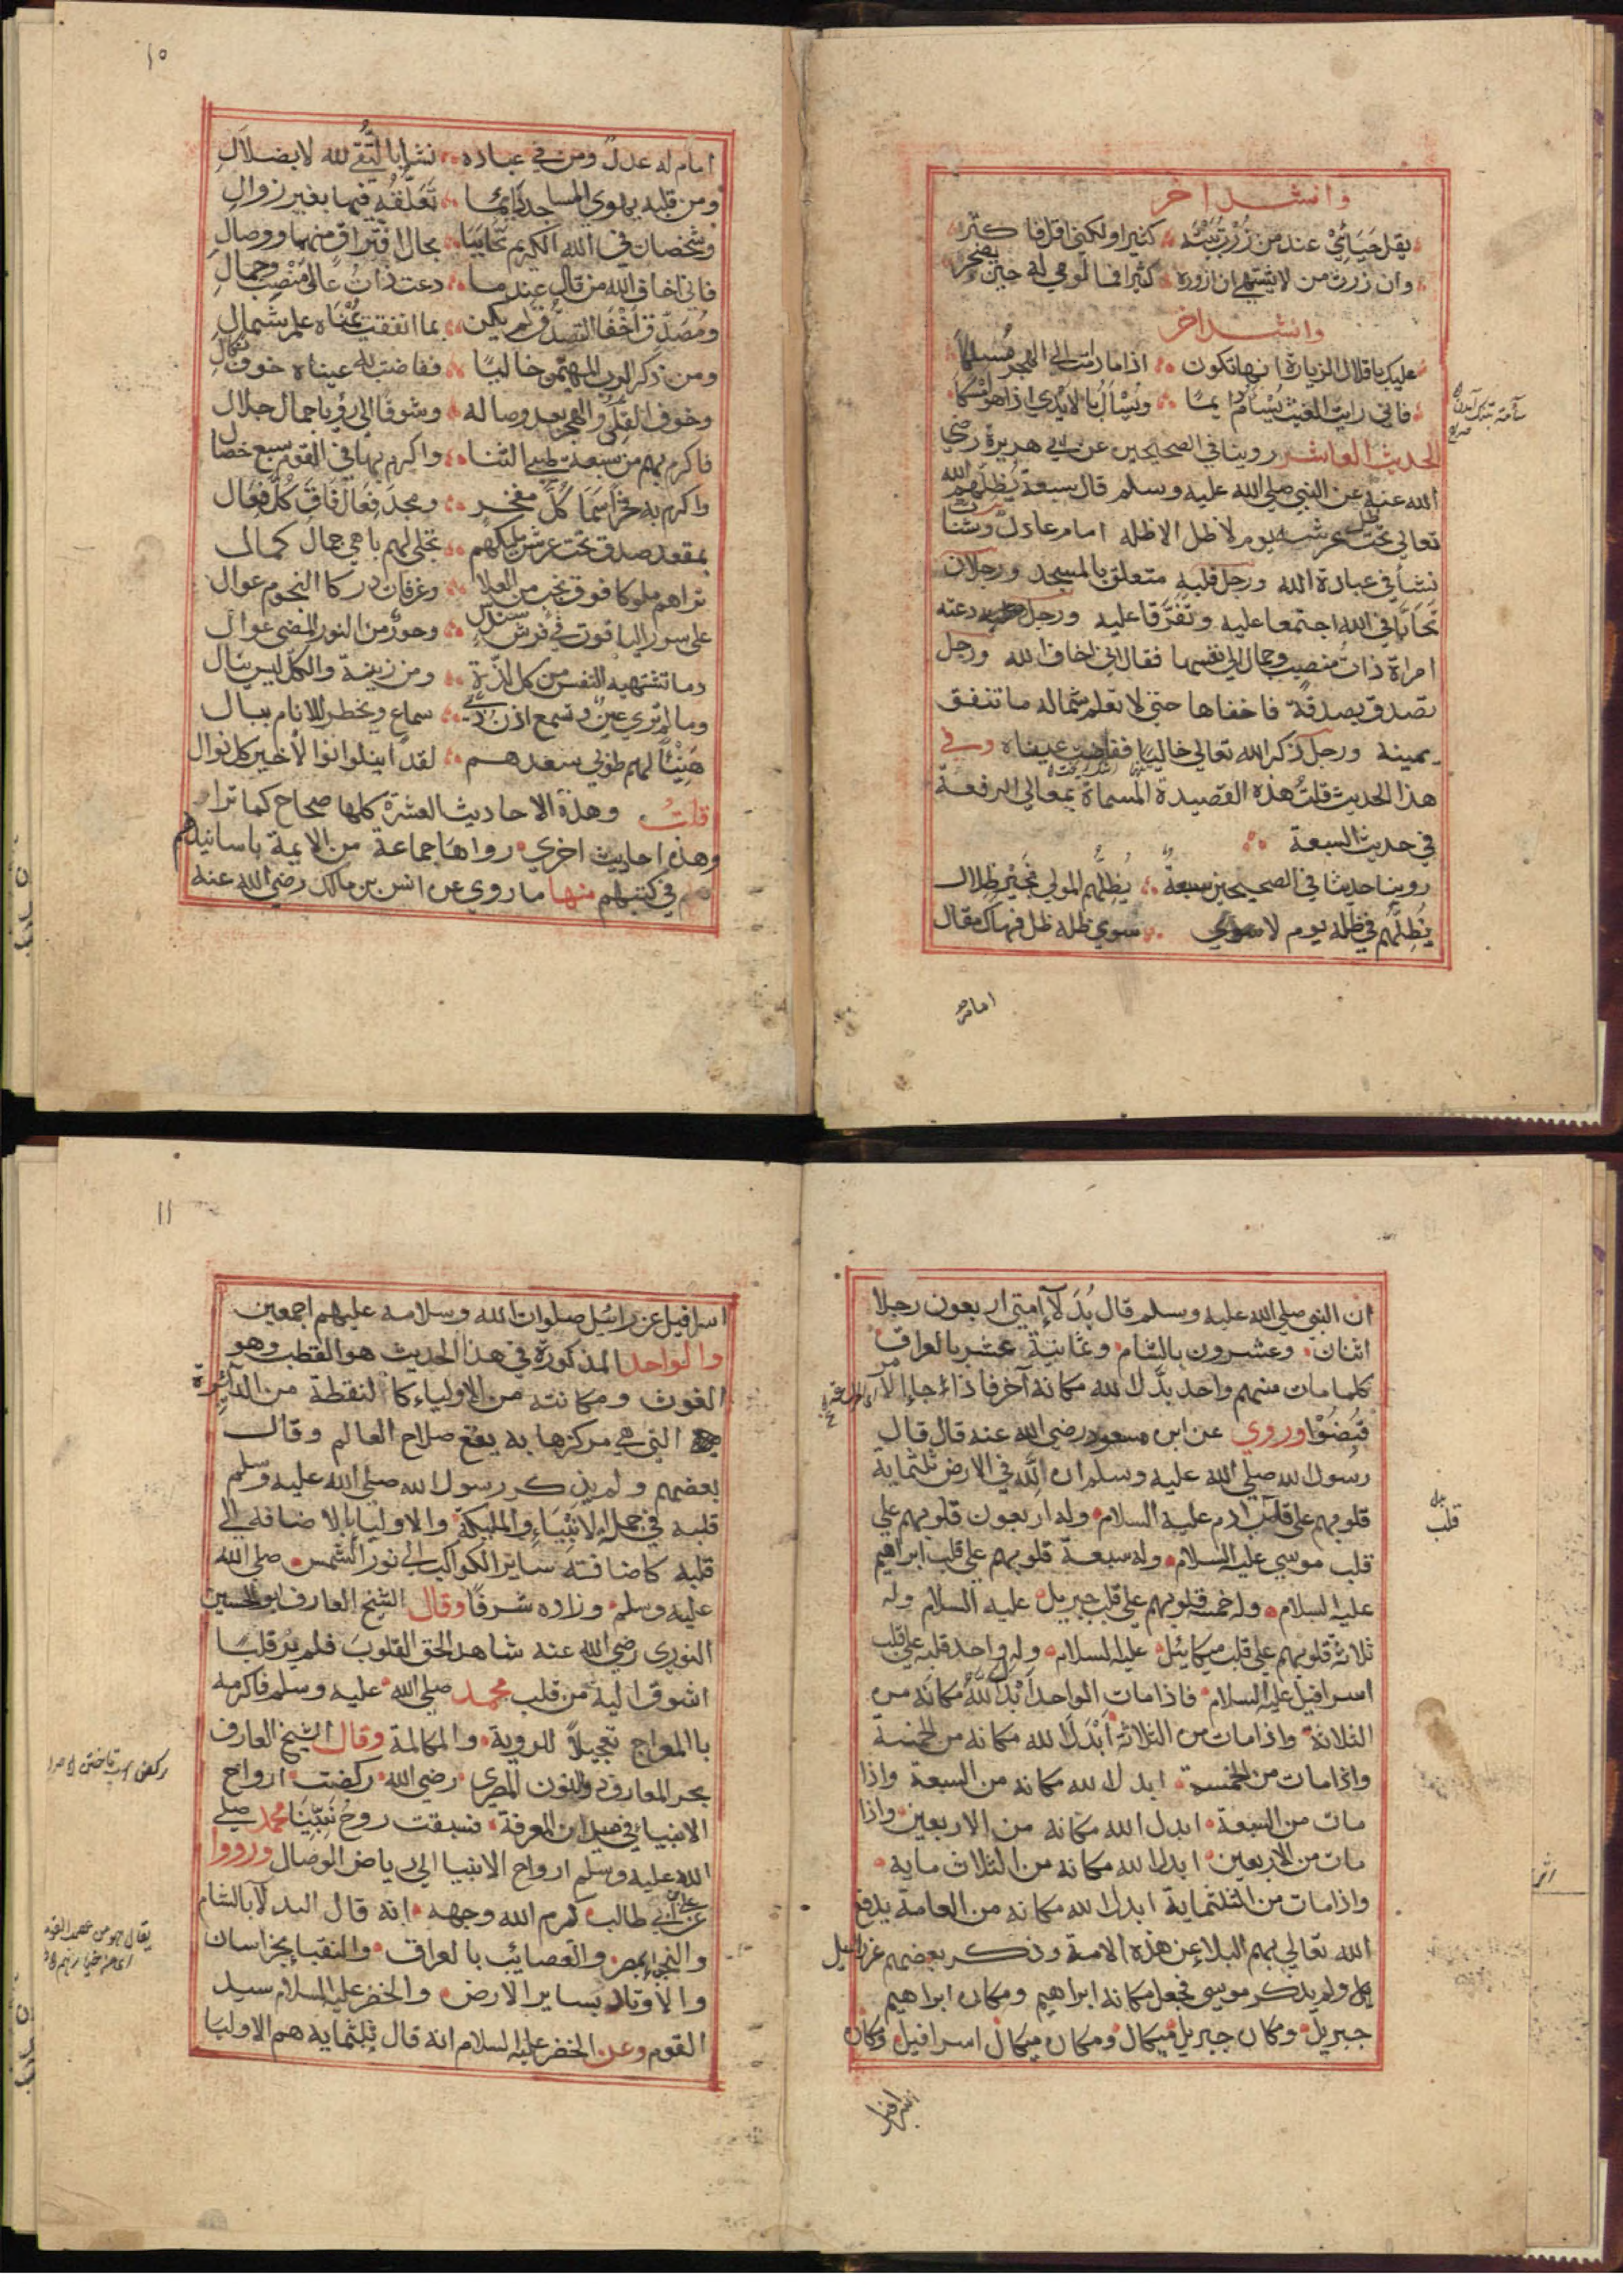 وانشد اخر
يقل حيائي عند من زرت بيته كثيرا ولكني اقل فا كثر
وان زرت من لا يشتهي ان ازوره كثيرا فما لومي له حين يضجر
وانشد اخر
عليك باقلال الزيارة انها تكون اذا ما رامت الي الهجر مسلكا
فاني رايت الغيث يسام دايما ويسال بالايدي اذا هو امسكا
الحديث العاشر روينا في الصحيحين عن ابي هريرة رضي
الله عنه عن النبي صلي الله عليه وسلم قال سبعة يظلهم الله
تعالي تحت ظل عرشه يوم لا ظل الا ظله امام عادل وشاب
نشأ في عبادة الله ورجل قلبه متعلق بالمسجد ورجلان
تحابا في الله اجتمعا عليه وتفرقا عليه ورجل دعته
امراة ذات منصب وجمال الي نفسها فقال اني اخاف الله ورجل
تصدق بصدقة فاخفاها حتي لا تعلم شماله ما تنفق
يمينه ورجل ذكر الله تعالي خاليا ففاضت عيناه وفي
هذا الحديث قلت هذه القصيدة المسماة بمعالي الرفعة
في حديث السبعة
روينا حديثا في الصحيحين سبعة يظلهم المولي بخير ظلال
يظلهم في ظله يوم لا سوي سوي ظله ظل فهاك مقال
امام
١٥
امام له عدل ومن في عباده نشا بالتقي لله لا بضلال
ومن قلبه يهوي المساجد دايما تعلقه فيها بغير زوال
وشخصان في الله الكريم تحاببا بحال افتراق منهما ووصال
فاني اخاف الله من قال عندما دعت ذات عالي منصب وجمال
ومصدق اخفا التصدق لم يكن بما انفقت يمناه علم شمال
ومن ذكر الرب المهيمن خاليا ففاضت له عيناه خوف نكال
وخوف القلي والهجر بعد وصاله وشوقا الي رؤيا جمال جلال
فاكرم بهم من سبعة طيبي الثنا واكرم بها في القوم سبع خصال
واكرم به فخرا سما كل مفخر ومجد فعال فاق كل فعال
بمقعد صدق تحت عرش مليكهم تجلي لهم باهي جمال كمال
تراهم ملوكا فوق نجب من العلا وغرفان در كا النجوم عوال
علي سور الياقوت في فرش سندس وحور من النور المضي عوال
وما تشتهيه النفس من كل لذة ومن زينة والكل ليس بسال
وما لم تري عين وتسمع اذن ذي سماع ويخطر للانام ببال
هنيئا لهم طوبي سعدهم لقد اينلوا نوالا خير كل نوال
قلت وهذه الاحاديث العشرة كلها صحاح كما ترا
وهذه احاديث اخري رواها جماعة من الايمة باسانيدهم
في كتبهم منها ما روي عن انس بن مالك رضي الله عنه
ان النبي صلي الله عليه وسلم قال بدلاء امتي اربعون رجلا
اثنان وعشرون بالشام وثمانية عشر بالعراق
كلما مات منهم واحد بدل الله مكانه آخر فاذا جاء الامر
قبضوا وروي عن ابن مسعود رضي الله عنه قال قال
رسول الله صلي الله عليه وسلم ان لله في الارض ثلثماية
قلوبهم علي قلب آدم عليه السلام وله اربعون قلوبهم علي
قلب موسي عليه السلام وله سبعة قلوبهم علي قلب ابراهيم
عليه السلام وله خمسة قلوبهم علي قلب جبريل عليه السلام وله
ثلاثة قلوبهم علي قلب ميكائيل عليه السلام وله واحد قلبه علي قلب
اسرافيل عليه السلام فاذا مات الواحد ابدل الله مكانه من
الثلاثة واذا مات من الثلاثة ابدل الله مكانه من الخمسة
واذا مات من الخمسة ابدل الله مكانه من السبعة واذا
مات من السبعة ابدل الله مكانه من الاربعين واذا
مات من الاربعين ابدل الله مكانه من الثلاث ماية
واذا مات من الثلثماية ابدل الله مكانه من العامة يدفع
الله تعالي بهم البلاء عن هذه الامة وذكر بعضهم عزرائيل
ولم يذكر موسي فجعل مكانه ابراهيم ومكان ابراهيم
جبريل ومكان جبريل ميكال ومكان ميكال اسرافيل ومكان
قلب
اسرافيل
١١
اسرافيل عزرائيل صلوات الله وسلامه عليهم اجمعين
والواحد المذكورة في هذا الحديث هو القطب وهو
الغوث ومكانته من الاولياء كا لنقطة من الدائرة
التي هي مركزها به يقع صلاح العالم وقال
بعضهم ولم يذكر رسول الله صلي الله عليه وسلم
قلبه في جملة الانبياء والمليكة والاوليا بالاضافه الي
قلبه كاضافته ساير الكواكب الي نور الشمس صلي الله
عليه وسلم وزاده شرفا وقال الشيخ العارف ابو الحسين
النوري رضي الله عنه شاهد الحق القلوب فلم ير قلبا
اشوق اليه من قلب محمد صلي الله عليه وسلم فاكرمه
باالمعراج تعجيلا للروية والمكالمة وقال الشيخ العارف
بحر المعارف ذوالنون المصري رضي الله ركضت ارواح
الانبياء في ميدان المعرفة فسبقت روح نبينا محمد صلي
الله عليه وسلم ارواح الانبيا الي رياض الوصال ورووا
عن علي بن ابي طالب كرم الله وجهه انه قال البدلآ بالشام
والنجباء بمصر والعصايب بالعراق والنقباء بخراسان
والاوتاد بساير الارض والخضر عليه السلام سيد
القوم وعن الخضر عليه السلام انه قال ثلثماية هم الاوليا